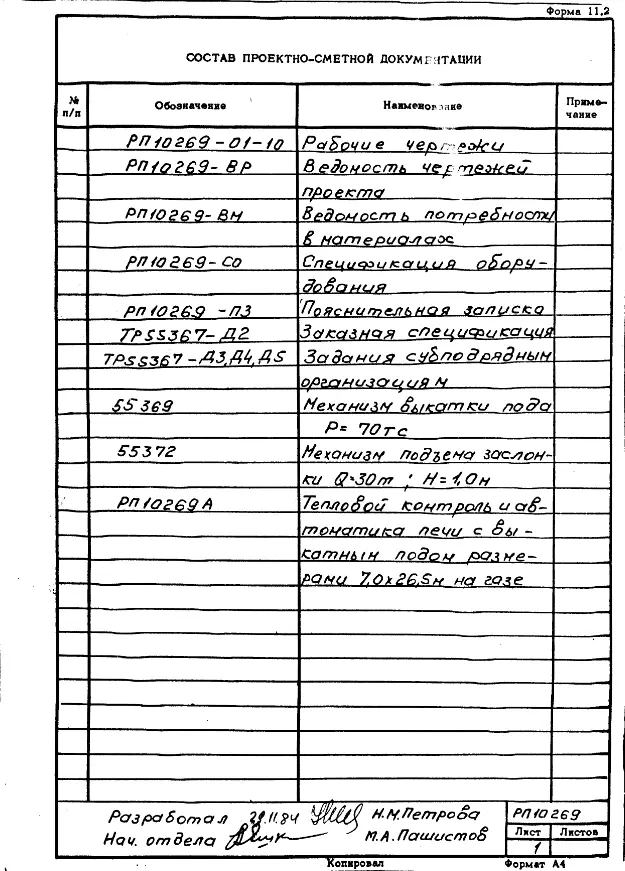 Форма 11,2
СОСТАВ ПРОЕКТНО-СМЕТНОЙ ДОКУМЕНТАЦИИ
№ п/п Обозначение Наименование Приме-чание
РП10269-01-10 Рабочие чертежи
РП10269-ВР Ведомость чертежей
проекта
РП10269-ВМ Ведомость потребности
в материалах
РП10269-СО Спецификация обору-
дования
РП10269-ПЗ Пояснительная записка
ТР55367-Д2 Заказная спецификация
ТР55367-Д3,Д4,Д5 Задания субподрядным
организациям
55369 Механизм выкатки пода
Р=70тс
55372 Механизм подъема заслон-
ки Q=30т; Н=1,0м
РП10269А Тепловой контроль и ав-
томатика печи с вы-
катным подом разме-
рами 7,0х26,5м на газе
Разработал 29.11.84 Н.М.Петрова РП10269
Нач. отдела М.А.Пашистов Лист Листов
1
Копировал Формат А4